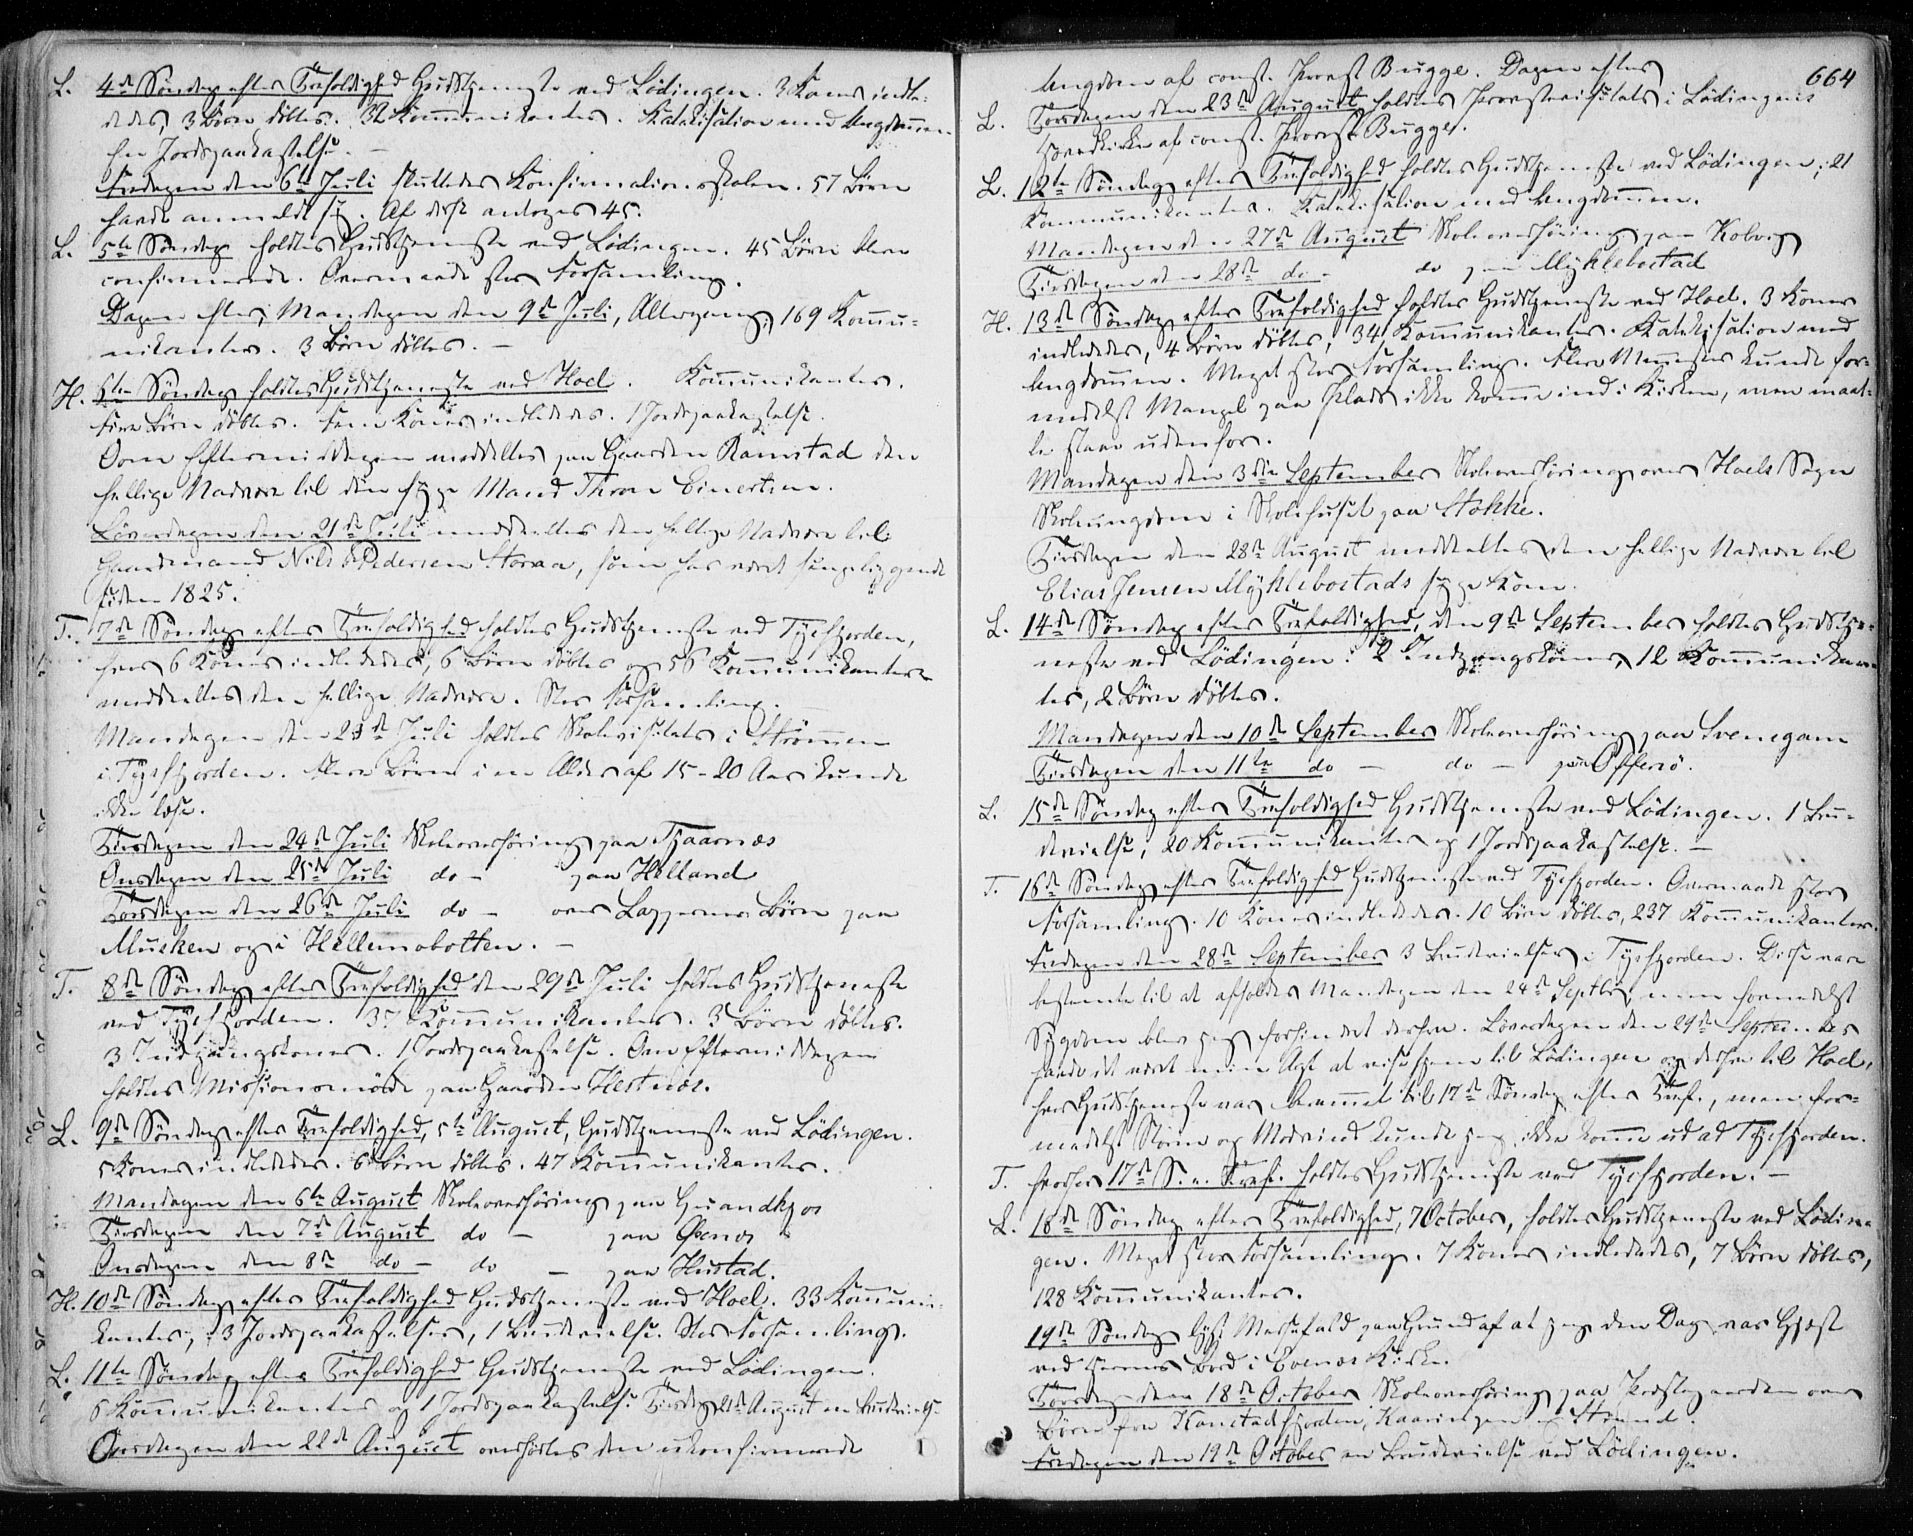 L. 4de Søndag efter Trefoldighed Gudstjeneste ved Lödingen. 3 Koner indle-
dedes, 3 Börn döbtes. 32 Kommunikanter. Katekisation med Ungdommen.
En Jordpaakastelse. –
Fredagen den 6te Juli sluttedes Konfirmationsskolen. 57 Børn
havde anmeldt sig. Af disse antoges 45.
L. 5te Søndag holdtes Gudstjeneste ved Lödingen. 45 Börn bleve
confirmerede. Overmaade stor Forsamling.
Dagen efter, Mandagen den 9de Juli, Altergang, 169 Kommu-
nikanter. 3 Börn döbtes. –
H. 6te Søndag holdtes Gudstjeneste ved Hoel. Kommunikanter.
Fire Börn döbtes. Fem Koner indlededes. 1 Jordpaakastelse.
Om Eftermiddagen meddeltes paa Gaarden Ramstad den
hellige Nadvere til den syge Mand Thron Einertsen.
Løverdagen den 21de Juli meddeltes den hellige Nadvere til
Gaardmand Nils Pedersen Storaa, som har været sengeliggende
siden 1825.
T. 7de Søndag efter Trefoldighed holdtes Gudstjeneste ved Tysfjorden,
hvor 6 Koner indlededes, 6 Börn döbtes og 56 Kommunikanter
meddeltes den hellige Nadvere. Stor Forsamling.
Mandagen den 23de Juli holdtes Skolevisitats i Strømmen
i Tysfjorden. Flere Börn i en Alder af 15-20 Aar kunde
ikke læse.
Tirsdagen den 24de Juli Skoleoverhöring paa Tjaarnæs
Onsdagen den 25de Juli do – paa Helland
Torsdagen den 26de Juli do – over Lappernes Börn paa
Musken og i Hellemobotten. –
T. 8de Søndag efter Trefoldighed den 29de Juli holdtes Gudstjeneste
ved Tysfjorden. 37 Kommunikanter. 3 Börn döbtes.
3 Indgangskoner. 1 Jordpaakastelse. Om Eftermiddagen
holdtes Missionsmöde paa Gaarden Hestnæs.
L. 9de Søndag efter Trefoldighed, 5te August, Gudstjeneste ved Lödingen.
5 Koner indlededes. 6 Börn döbtes. 47 Kommunikanter.
Mandagen den 6te August Skoleoverhöring paa
Tirsdagen den 7de August do – paa
Onsdagen den 8de do – do – paa Hustad.
H. 10de Søndag efter Trefoldighed Gudstjeneste ved Hoel. 33 Kommuni-
kanter, 3 Jordpaakastelser, 1 Brudevielse. Stor Forsamling.
L. 11te Søndag efter Trefoldighed Gudstjeneste ved Lödingen.
6 Kommunikanter og 1 Jordpaakastelse. Tirsdag 21de August en Brudevielse.
Onsdagen den 22de August overhörtes den ukonfirmerede
664
Ungdom af const. Provst Bugge. Dagen efter,
L. Torsdagen den 23de August holdtes Provstevisitats i Lödingens
Hovedkirke af const. Provst Bugge.
L. 12te Søndag efter Trefoldighed holdtes Gudstjeneste ved Lödingen; 21
Kommunikanter. Katekisation med Ungdommen.
Mandagen den 27de August Skoleoverhöring paa Kobvig
Tirsdagen den 28de do – do paa Myklebostad
H. 13de Søndag efter Trefoldighed holdtes Gudstjeneste ved Hoel. 3 Koner
indlededes, 4 Börn döbtes, 34 Kommunikanter. Katekisation med
Ungdommen. Meget stor Forsamling. Flere Mennesker kunde for-
medelst Mangel paa Plads ikke komme ind i Kirken, men maat-
te staae udenfor.
Mandagen den 3die September Skoleoverhöring over Hoels Sogns
Skoleungdom i Skolehuset paa Stokke.
Tirsdagen den 28de August meddeltes den hellige Nadvere til
Elias Jensen Myklebostads syge Kone.
L. 14de Søndag efter Trefoldighed, den 9de September holdtes Gudstje-
neste ved Lödingen. 2 Indgangskoner, 12 Kommunikan-
ter, 2 Börn döbtes.
Mandagen den 10de September Skoleoverhöring paa Svenegam
Tirsdagen den 11te do – do – paa Offersö.
L. 15de Søndag efter Trefoldighed Gudstjeneste ved Lödingen. 1 Bru-
devielse, 20 Kommunikanter og 1 Jordpaakastelse. –
T. 16de Søndag efter Trefoldighed Gudstjeneste ved Tysfjorden. Overmaade stor
Forsamling. 10 Koner indlededes. 10 Börn döbtes, 237 Kommunikanter.
Fredagen den 28de September 3 Brudevielser i Tysfjorden. Disse vare
bestemte til at afholdes Mandagen den 24de Septbr, men formedelst
Sygdom blev jeg forhindret derfra. Løverdagen den 29de September
havde det været min Agt at reise hjem til Lödingen og derfra til Hoel,
hvor Gudstjeneste var berammet til 17de Søndag efter Tref., men for-
medelst Storm og Modvind kunde jeg ikke komme ud ad Tysfjorden.
T. Hvorfor 17de S. e. Tref. holdtes Gudstjeneste ved Tysfjorden. –
L. 18de Søndag efter Trefoldighed, 7 October, holdtes Gudstjeneste ved Lödin-
gen. Meget stor Forsamling. 7 Koner indlededes, 7 Börn döbtes,
128 Kommunikanter.
19de Søndag Messefald paa Grund af at jeg den Dag var Gjæst
ved Herrens Bord i Evenæs Kirke.
Torsdag den 18de October Skoleoverhöring paa Prestegaarden over
Börn fra Kanstadfjorden, Kaaringen og Strand.
Fredagen den 19de October en Brudevielse ved Lödingen.